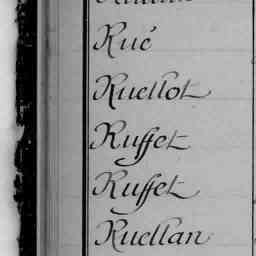 Rué
Ruellot
Ruffet
Ruffet
Ruellan